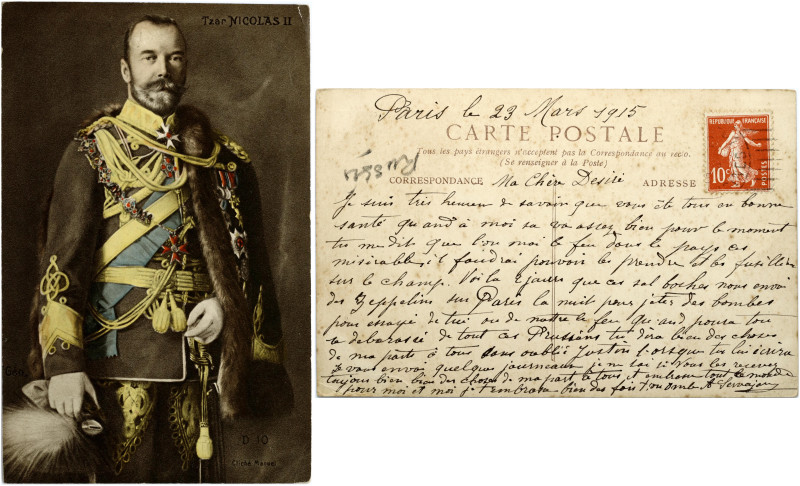 Tzar NICOLAS II
D 10
Cliché Manuel
Paris le 23 Mars 1915
REPUBLIQUE FRANÇAISE
10c
CARTE POSTALE
Tous les pays étrangers n'acceptent pas la Correspondance au recto.
(Se renseigner à la Poste)
Russia
CORRESPONDANCE Ma Chère Desiré ADRESSE
Je suis très heureu de savoir que vous ete tous en bonne
santé quand à moi sa va assez bien pour le moment
tu me dit que l'on moi le feu dans le pays ces
misirables il faudrai pouvoir les prendre et les fusiller
sur le champ. Voila 2 jours que ces sal boches nous envoi
des Zeppelins sur Paris la nuit pour jeter des bombes
pour essayé de tué ou de maitre le feu quand poura ton
se debarassé de tout ces Prussiens tu dira bien des choses
de ma parts à tous sans oublié Juston lorsque tu lui écrira
Je vous envoi quelque journeaux je ne sai si vous les recever
toujours bien bien des choses de ma part à tous et embrasse tout le monde
pour moi et moi je t'embrasse bien des fois Ton